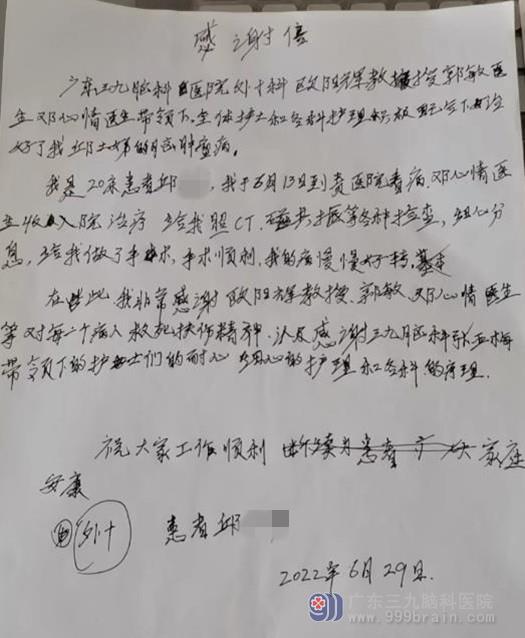 感谢信
广东三九脑科医院外十科欧阳辉教授郭敏医
生邓心情医生带领下.全体护士和各科护理积极配合下好治
好了我邱土娣的脑肿瘤病。
我是20床患者邱 我于6月13日到贵医院看病.邓心情医
生收入院治疗 给我照CT.磁共振等各种检查，细心分
息，给我做了手术，手术顺利，我的病慢慢好转，基本
在此我非常感谢欧阳辉教授，郭敏，邓心情医生
等对每一个病人救死扶伤精神.以及感谢三九脑科
带领下的护士们的耐心 细心的护理和各科的
祝大家工作顺利 家庭
安康
外十 患者邱
2022年6月29日.
广东三九脑科医院
www.999brain.com